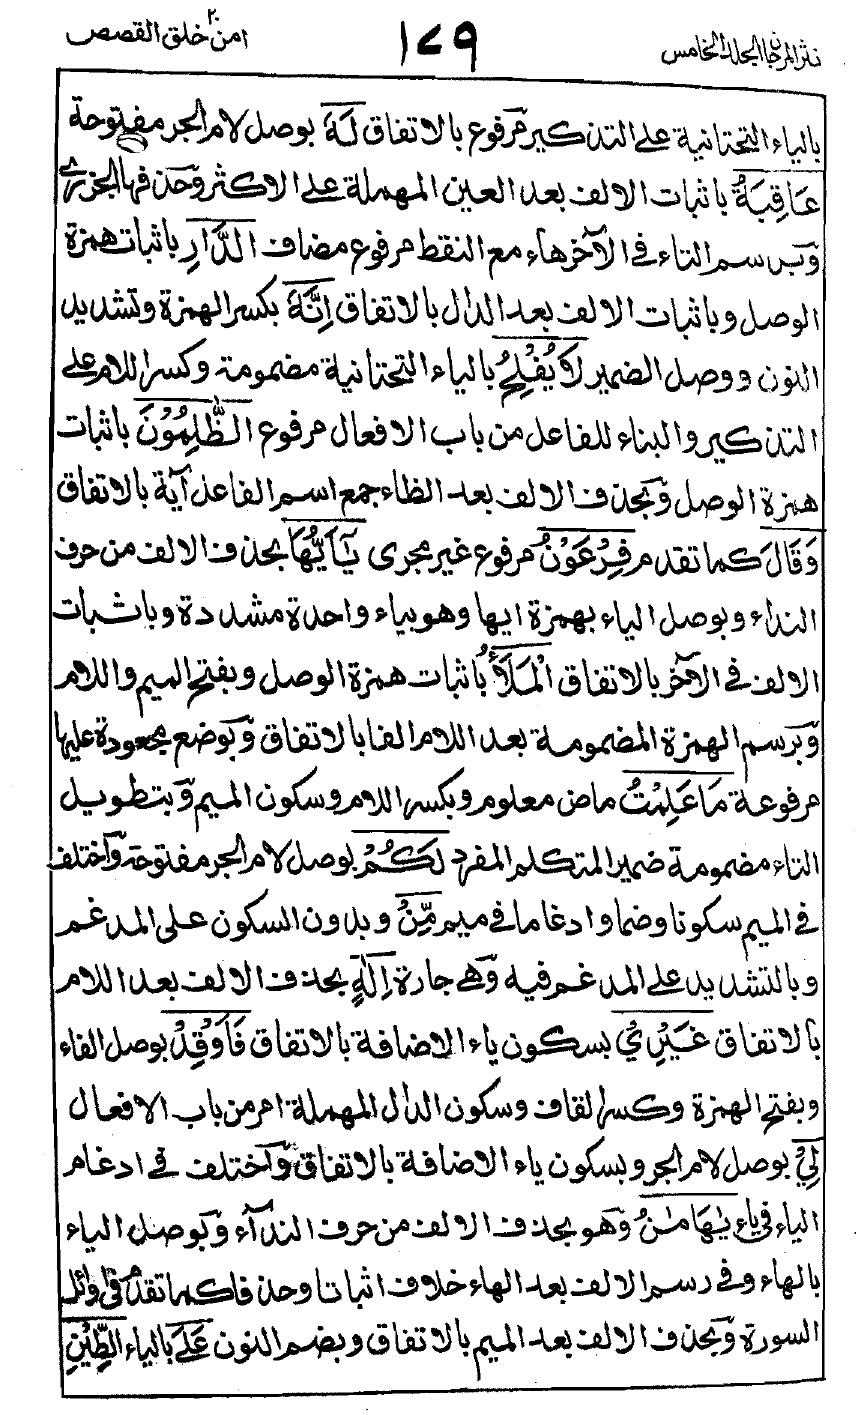 نثر المرجان المجلد الخامس
١٧٩
امن خلق ٢٠ القصص
بالياء التحتانية على التذكير مرفوع بالاتفاق لَهٗ بوصل لام الجر مفتوحة
عَاقِبَةُ باثبات الالف بعد العين المهملة على الاكثر وحذفها الجزري
وبرسم التاء في الآخر هاء مع النقط مرفوع مضاف الدَّارِ باثبات همزة
الوصل وباثبات الالف بعد الدال بالاتفاق اِنَّهٗ بكسر الهمزة وتشديد
النون ووصل الضمير لَا يُفْلِحُ بالياء التحتانية مضمومة وكسر اللام على
التذكير والبناء للفاعل من باب الافعال مرفوع الظّٰلِمُوْنَ باثبات
همزة الوصل وبحذف الالف بعد الظاء جمع اسم الفاعل آية بالاتفاق
وَقَالَ كما تقدم فِرْعَوْنُ مرفوع غير مجرى يٰٓاَيُّهَا بحذف الالف من حرف
النداء وبوصل الياء بهمزة ايها وهو بياء واحدة مشددة وباثبات
الالف في الآخر بالاتفاق الْمَلَاُ باثبات همزة الوصل وبفتح الميم واللام
وبرسم الهمزة المضمومة بعد اللام الفا بالاتفاق وبوضع مجعودة عليها
مرفوعة مَا عَلِمْتُ ماض معلوم وبكسر اللام وسكون الميم وبتطويل
التاء مضمومة ضمير المتكلم المفرد لَكُمْ بوصل لام الجر مفتوحة واختلف
في الميم سكونا وضما وادغاما في ميم مِّنْ وبدون السكون على المدغم
وبالتشديد على المدغم فيه وهي جارة اِلٰهٍ بحذف الالف بعد اللام
بالاتفاق غَيْرِيْ بسكون ياء الاضافة بالاتفاق فَاَوْقِدْ بوصل الفاء
وبفتح الهمزة وكسر القاف وسكون الدال المهملة امر من باب الافعال
لِيْ بوصل لام الجر وبسكون ياء الاضافة بالاتفاق واختلف في ادغام
الياء في ياء يٰهَامٰنُ وهو بحذف الالف من حرف النداء وبوصل الياء
بالهاء وفي رسم الالف بعد الهاء خلاف اثباتا وحذفا كما تقدم في اوائل
السورة وبحذف الالف بعد الميم بالاتفاق وبضم النون عَلَى بالياء الطِّيْنِ